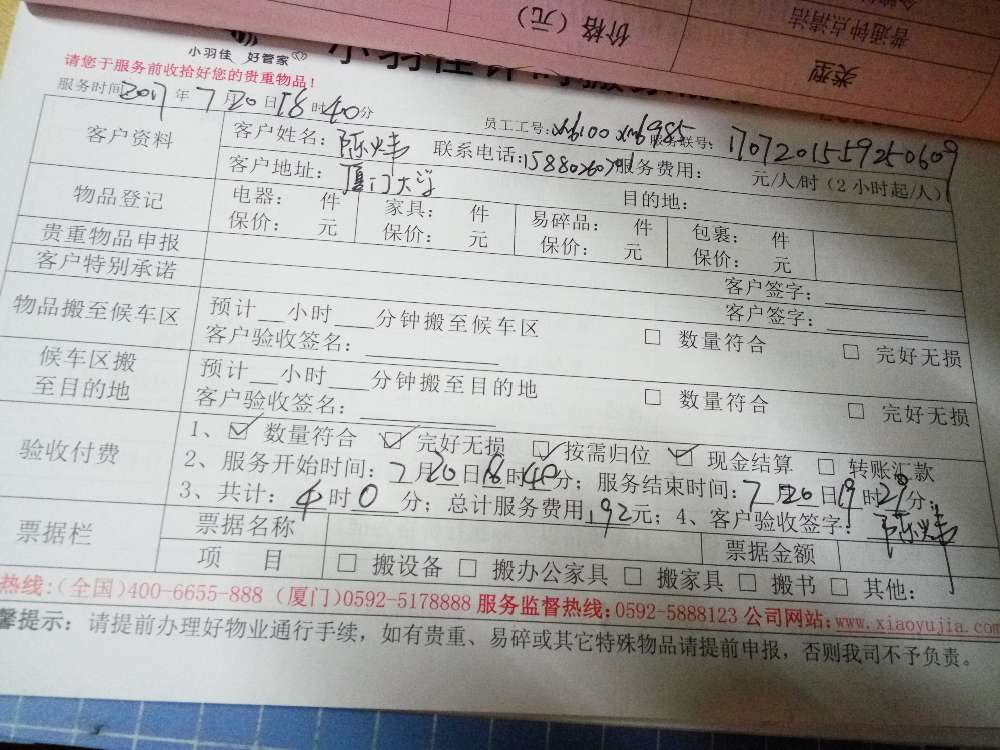 价格（元）
普通钟点清洁
类型
小羽佳 好管家
请您于服务前收拾好您的贵重物品！
服务时间2017年7月20日18时40分
员工工号：xm6100 xm6985 服务联号：1707201559250609
客户资料 客户姓名：陈炜 联系电话： 服务费用： 元/人/时（2小时起/人）
客户地址：厦门大学 目的地：
物品登记 电器： 件 家具： 件 易碎品： 件 包裹： 件
保价： 元 保价： 元 保价： 元 保价： 元
贵重物品申报 客户签字：
客户特别承诺 客户签字：
物品搬至候车区 预计__小时___分钟搬至候车区 □ 数量符合 □ 完好无损
客户验收签名：
候车区搬至目的地 预计__小时___分钟搬至目的地 □ 数量符合 □ 完好无损
客户验收签名：
验收付费 1、☑ 数量符合 ☑ 完好无损 ☑ 按需归位 ☑ 现金结算 □ 转账汇款
2、服务开始时间：7月20日18时40分；服务结束时间：7月20日19时29分；
3、共计：4时0分；总计服务费用192元；4、客户验收签字：陈炜
票据栏 票据名称 票据金额
项 目 □ 搬设备 □ 搬办公家具 □ 搬家具 □ 搬书 □ 其他：
热线：（全国）400-6655-888（厦门）0592-5178888 服务监督热线：0592-5888123 公司网站：www.xiaoyujia.com
馨提示：请提前办理好物业通行手续，如有贵重、易碎或其它特殊物品请提前申报，否则我司不予负责。